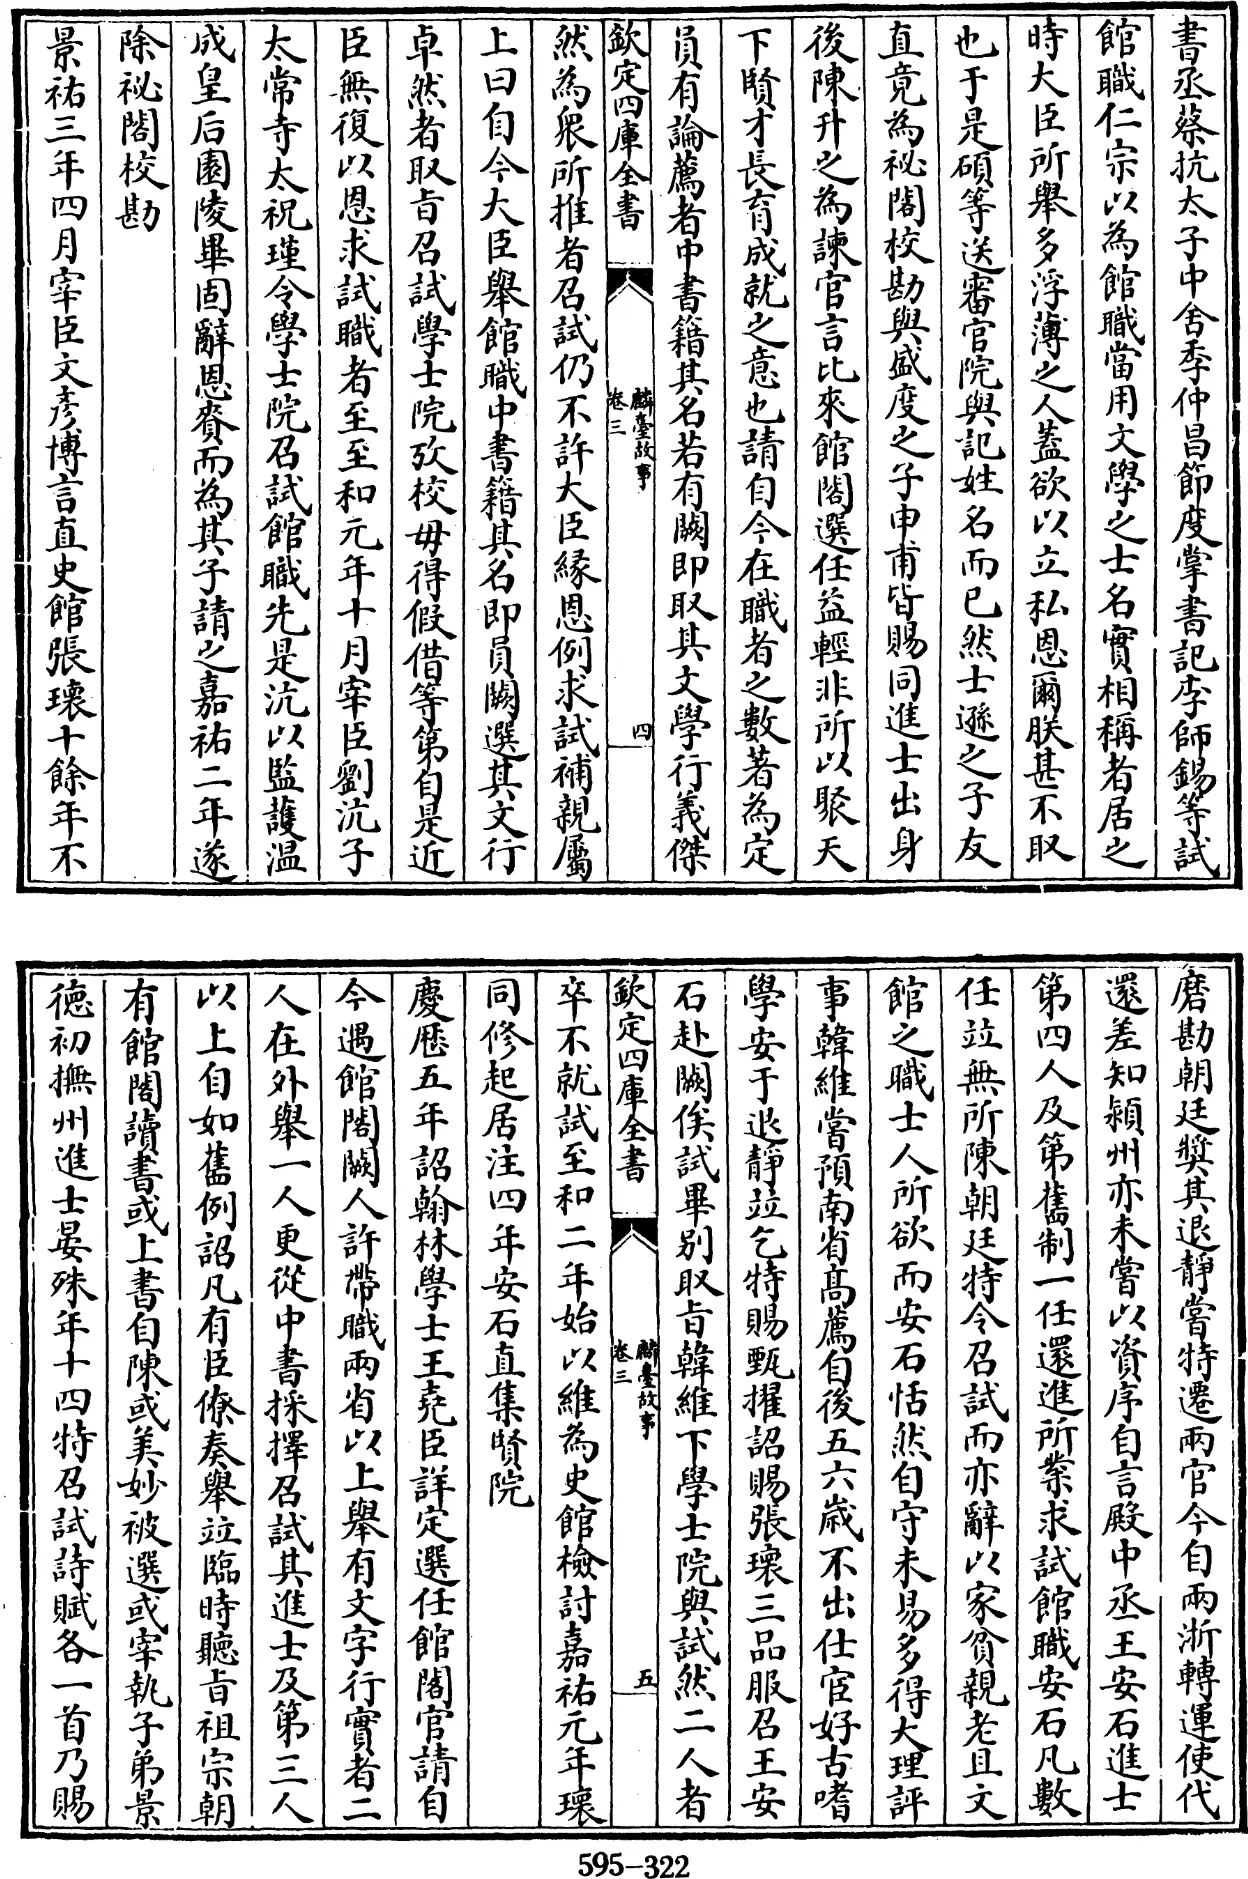 書丞蔡抗太子中舍季仲昌節度掌書記李師錫等試
館職仁宗以為館職當用文學之士名實相稱者居之
時大臣所舉多浮薄之人蓋欲以立私恩爾朕甚不取
也于是碩等送審官院與記姓名而已然士遜之子友
直竟為祕閣校勘與盛度之子申甫皆賜同進士出身
後陳升之為諫官言比來館閣選任益輕非所以聚天
下賢才長育成就之意也請自今在職者之數著為定
員有論薦者中書籍其名若有闕即取其文學行義傑
欽定四庫全書
麟臺故事
卷三
四
然為衆所推者召試仍不許大臣縁恩例求試補親屬
上曰自今大臣舉館職中書籍其名即員闕選其文行
卓然者取旨召試學士院攷校毋得假借等第自是近
臣無復以恩求試職者至至和元年十月宰臣劉沆子
太常寺太祝瑾令學士院召試館職先是沆以監護温
成皇后園陵畢固辭恩賚而為其子請之嘉祐二年遂
除祕閣校勘
景祐三年四月宰臣文彦博言直史館張瓌十餘年不
磨勘朝廷奬其退靜嘗特遷兩官今自兩浙轉運使代
還差知潁州亦未嘗以資序自言殿中丞王安石進士
第四人及第舊制一任還進所業求試館職安石凡數
任竝無所陳朝廷特令召試而亦辭以家貧親老且文
館之職士人所欲而安石恬然自守未易多得大理評
事韓維嘗預南省髙薦自後五六歳不出仕宦好古嗜
學安于退靜竝乞特賜甄擢詔賜張瓌三品服召王安
石赴闕俟試畢别取旨韓維下學士院與試然二人者
欽定四庫全書
麟臺故事
卷三
五
卒不就試至和二年始以維為史館檢討嘉祐元年瓌
同修起居注四年安石直集賢院
慶厯五年詔翰林學士王堯臣詳定選任館閣官請自
今遇館閣闕人許帶職兩省以上舉有文字行實者二
人在外舉一人更從中書採擇召試其進士及第三人
以上自如舊例詔凡有臣僚奏舉竝臨時聽旨祖宗朝
有館閣讀書或上書自陳或美妙被選或宰執子弟景
徳初撫州進士晏殊年十四特召試詩賦各一首乃賜
595-322